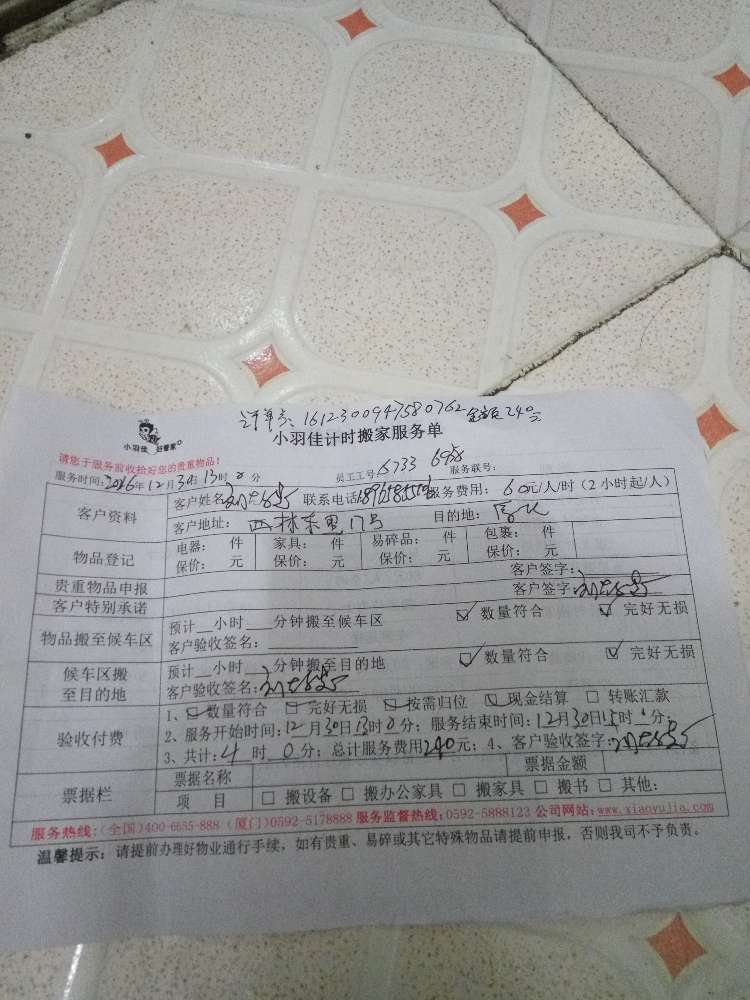 订单号:1612300947580762 金额240元
小羽佳 好管家
小羽佳计时搬家服务单
请您于服务前收拾好您的贵重物品!
服务时间:2016年12月30日13时0分 员工工号6733 6958 服务联号:
客户资料 客户姓名 联系电话 服务费用: 60元/人/时(2小时起/人)
客户地址: 西林东里17号 目的地:
物品登记 电器: 件 家具: 件 易碎品: 件 包裹: 件
保价: 元 保价: 元 保价: 元 保价: 元
贵重物品申报 客户签字:
客户特别承诺 客户签字:
物品搬至候车区 预计__小时___分钟搬至候车区 ☑ 数量符合 ☑ 完好无损
客户验收签名:
候车区搬至目的地 预计__小时___分钟搬至目的地 ☑ 数量符合 ☑ 完好无损
客户验收签名:
验收付费 1、☑数量符合 ☑完好无损 ☑按需归位 ☑现金结算 □ 转账汇款
2、服务开始时间:12月30日13时0分;服务结束时间:12月30日15时 分;
3、共计:4时0分;总计服务费用240元;4、客户验收签字:
票据栏 票据名称 票据金额
项 目 □ 搬设备 □ 搬办公家具 □ 搬家具 □ 搬书 □ 其他:
服务热线:(全国)400-6655-888 (厦门)0592-5178888 服务监督热线:0592-5888123 公司网站:www.xiaoyujia.com
温馨提示:请提前办理好物业通行手续,如有贵重、易碎或其它特殊物品请提前申报,否则我司不予负责。